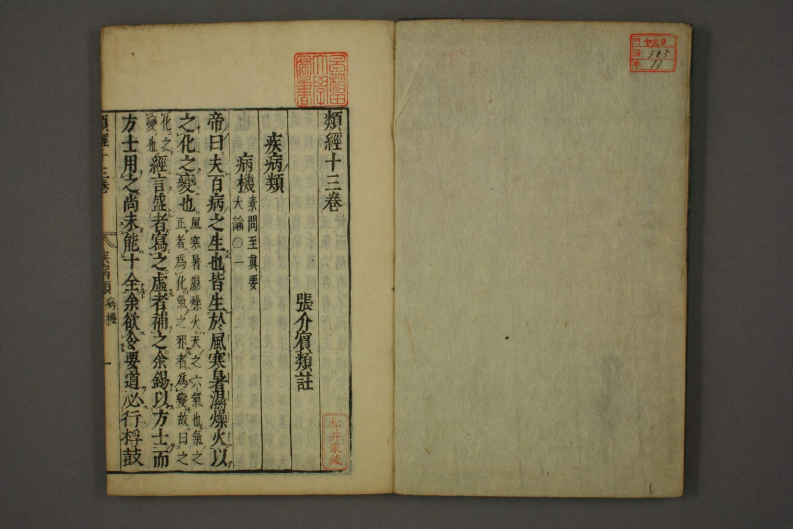 類經十三卷
張介賔類註
疾病類
病機素問至真要大論○一
帝曰夫百病之生也皆生於風寒暑濕燥火以
之化之變也風寒暑濕燥火天之六氣也氣之正者為化氣之邪者為變故曰之
化之變也經言盛者寫之虛者補之余錫以方士而
方士用之尚未能十全余欲令要道必行桴鼓
類經十三卷
疾病類 病機
一
早稻田大學圖書
松井家藏